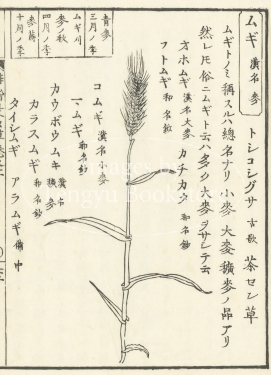 ムギ 漢名 麥 トシコシグサ 古歌 茶セン草
ムギトノミ稱スルハ總名ナリ小麥大麥穬麥ノ品アリ
然レモ俗ニムギト云ハ多ク大麥ヲサシテ云
オホムギ 漢名大麥 カチカタ 和名鈔
フトムギ 和名鈔
コムギ 漢名小麥
マムギ 和名鈔
カウボウムキ 漢名穬麥
カラスムギ 和名鈔
タイシムギ アラムギ 備中
青麥
三月ノ季
ムギ刈
麥ノ秋
四月ノ季
麥蒔
十月ノ季